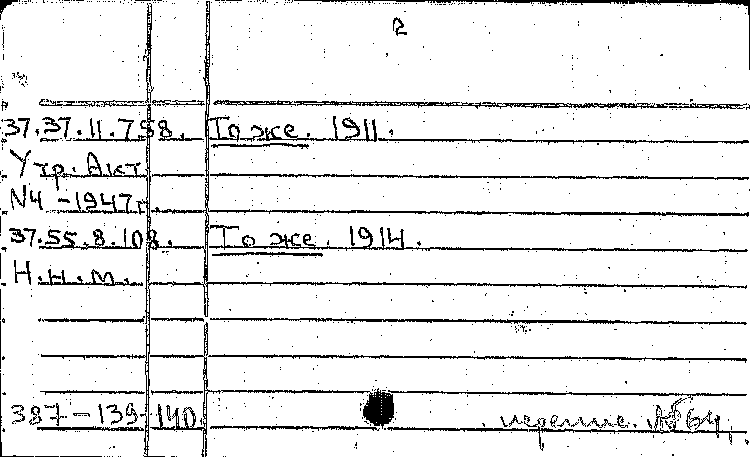 2
37.37.11.758. То же. 1911.
Утр. Акт
N4 - 1947г.
37.55.8.108. То же. 1914.
Н.н.м.
387-139-140.